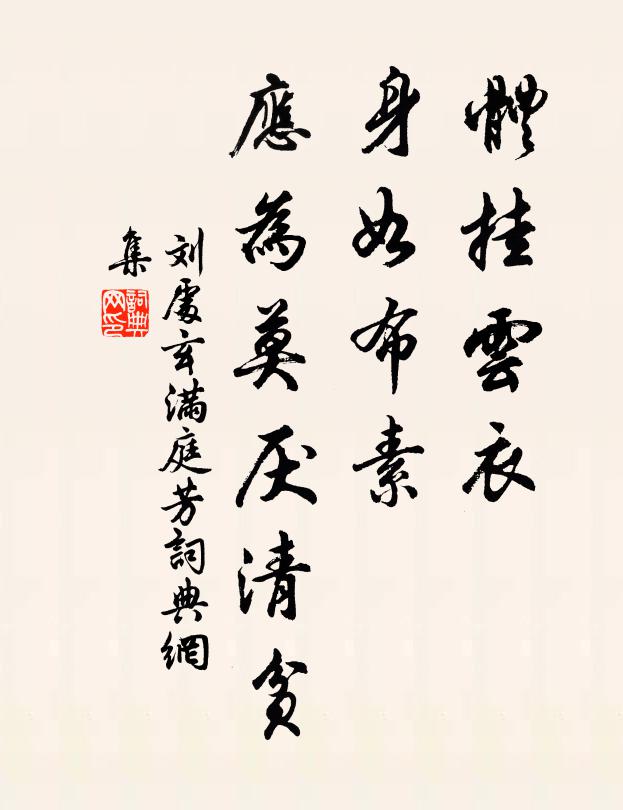 體挂雲衣
身如布素
應為莫厌清貧
刘處玄滿庭芳詞典網
集
詞典网印